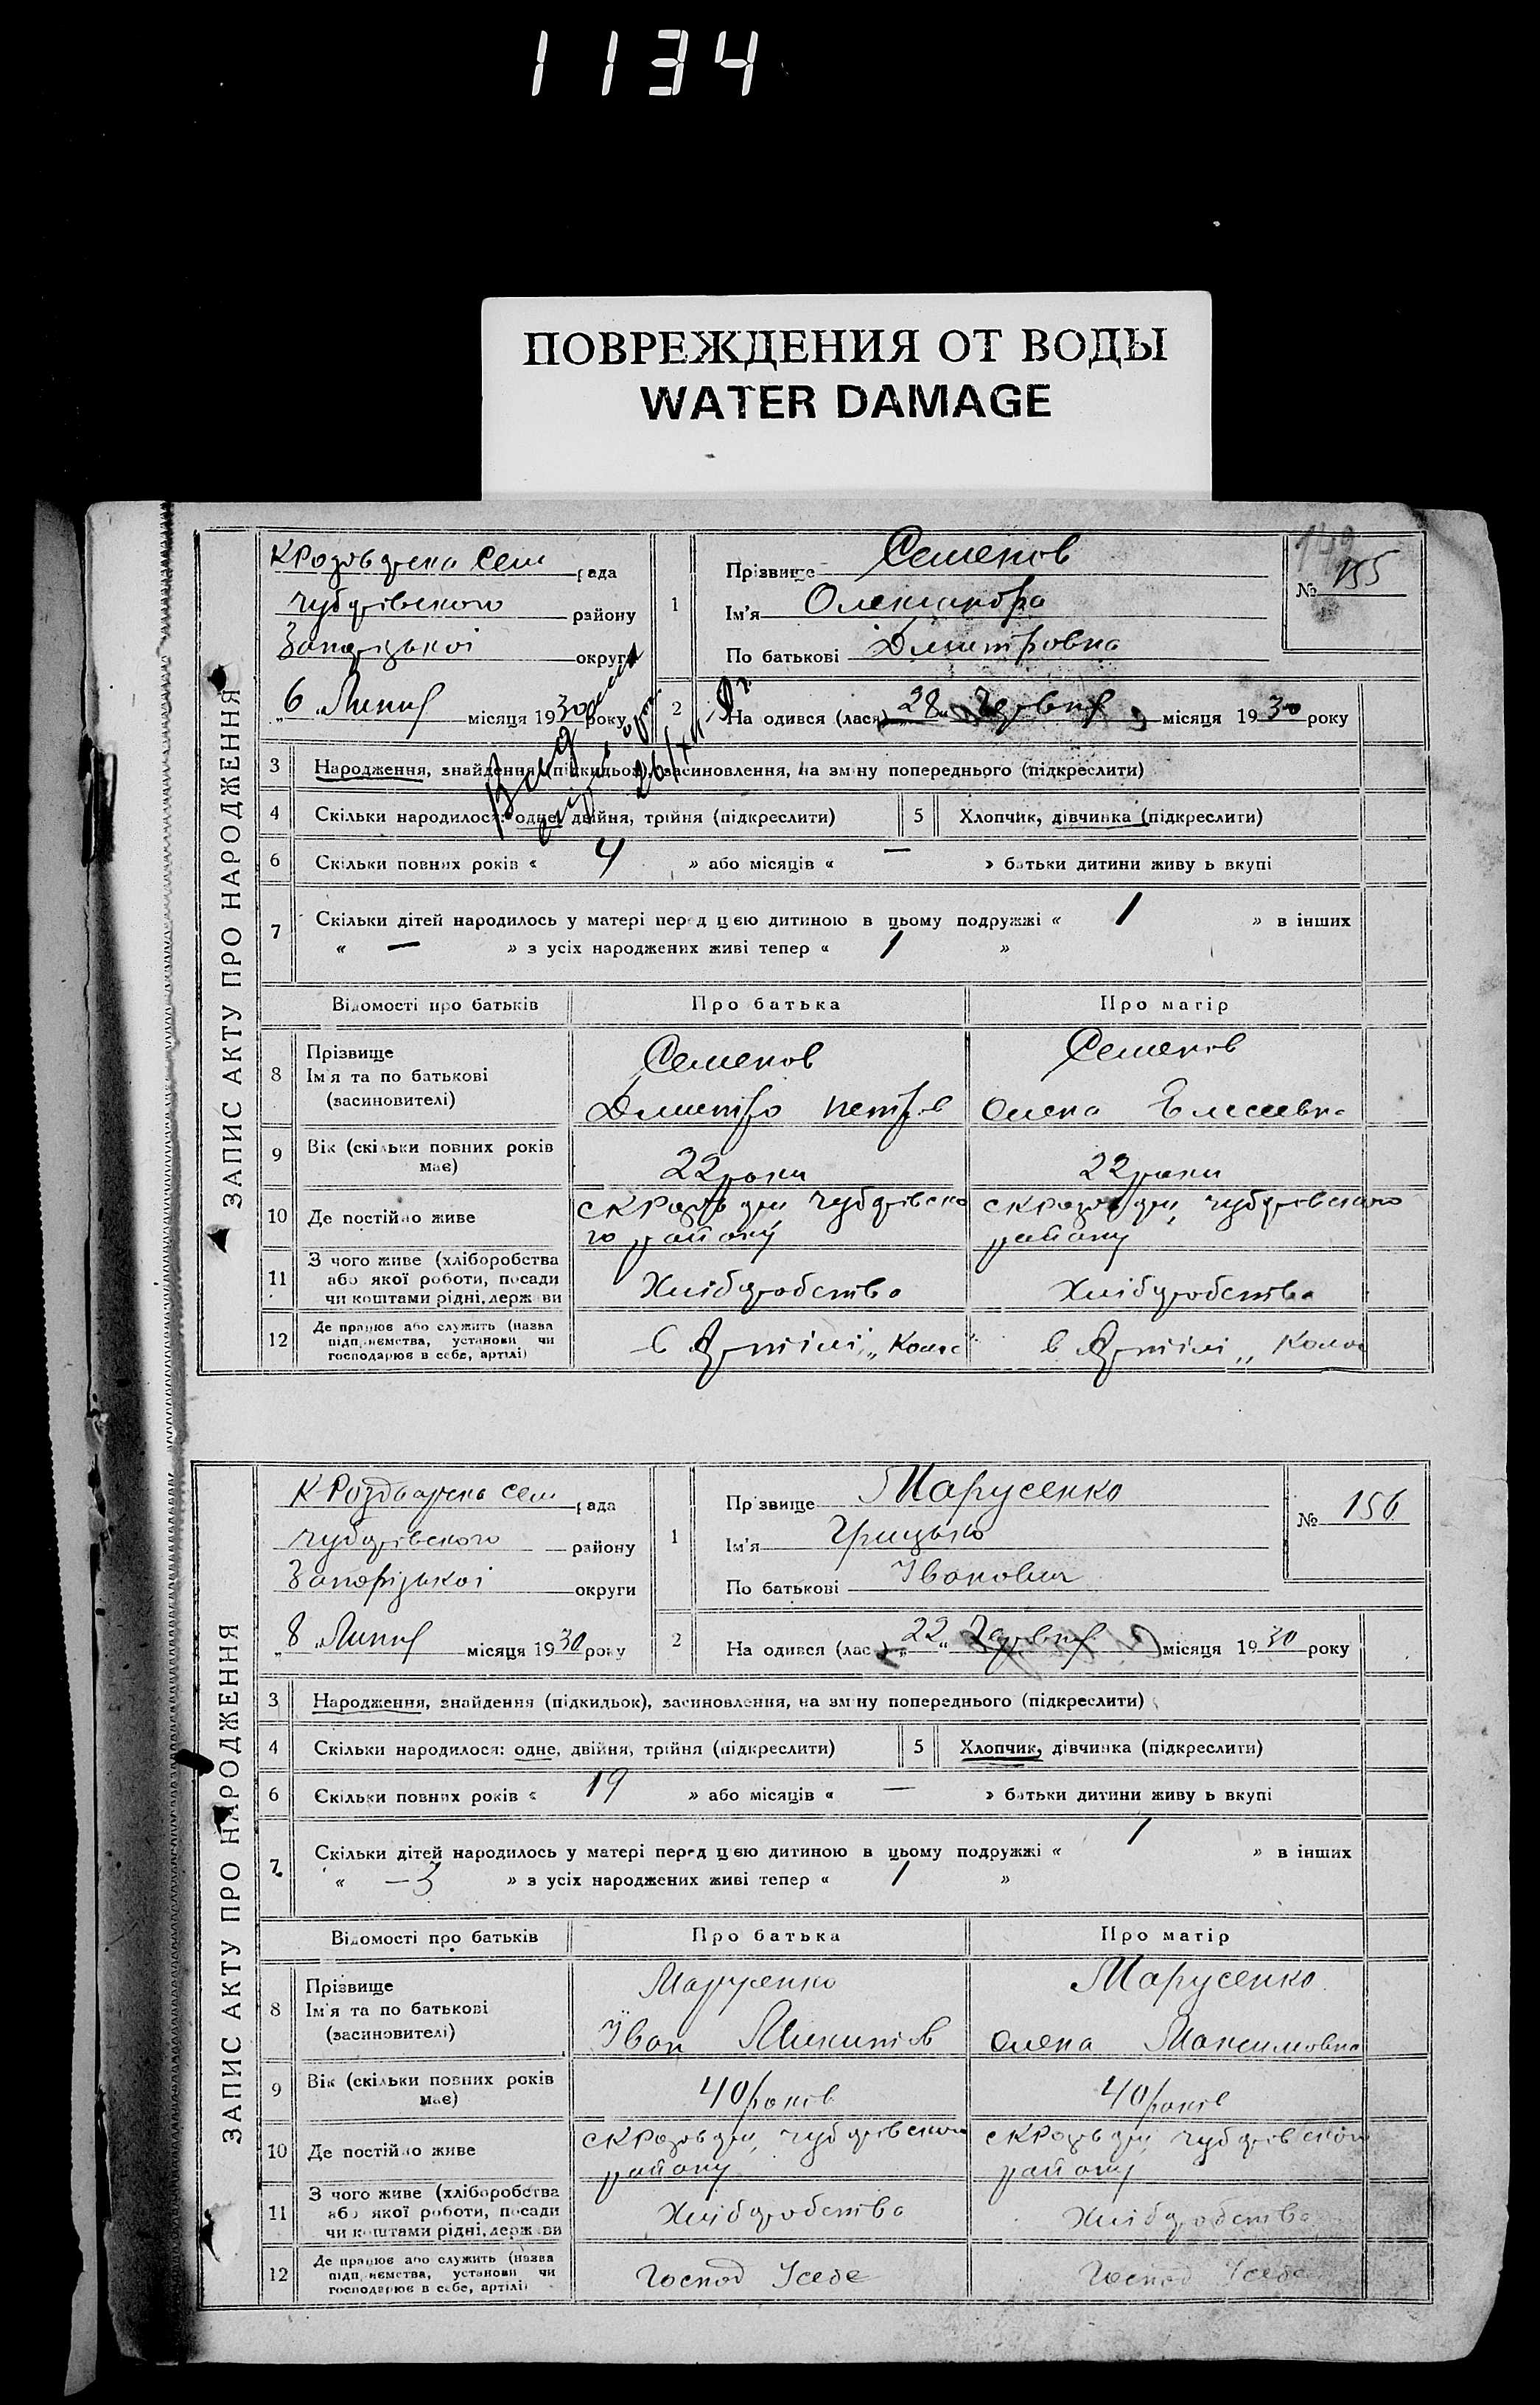 1134
ПОВРЕЖДЕНИЯ ОТ ВОДЫ
WATER DAMAGE
ЗАПИС АКТУ ПРО НАРОДЖЕННЯ
рада
Чубарівського району
Запорізької округи
6 Липня місяця 1930 року
1
Прізвище Семенов
Ім'я Олександра
По батькові Дмитровна
№ 155
2 На одився (лася) 28 Червня місяця 1930 року
3 Народження, знайдення (підкидьок), засиновлення, на зміну попереднього (підкреслити)
4 Скільки народилося: одне, двійня, трійня (підкреслити) 5 Хлопчик, дівчинка (підкреслити)
6 Скільки повних років « 4 » або місяців « — » батьки дитини живу ь вкупі
7 Скільки дітей народилось у матері перед цією дитиною в цьому подружжі « 1 » в інших
« — » з усіх народжених живі тепер « 1 »
Відомості про батьків Про батька Про матір
8 Прізвище
Ім'я та по батькові
(засиновителі)
Семенов Семенов
Дмитро Петров Олена Елисеевна
9 Вік (скільки повних років має) 22 роки 22 роки
10 Де постійно живе
Чубарівського району Чубарівського району
11 З чого живе (хліборобства
або якої роботи, посади
чи коштами рідні, держави
Хліборобство Хліборобство
12 Де працює або служить (назва
підприємства, установи чи
господарює в себе, артілі)
в Артілі „Колос" в Артілі „Колос
ЗАПИС АКТУ ПРО НАРОДЖЕННЯ
рада
Чубарівського району
Запорізької округи
8 Липня місяця 1930 року
1
Прізвище Марусенко
Ім'я Грицько
По батькові Іванович
№ 156
2 На одився (лася) 22 Червня місяця 1930 року
3 Народження, знайдення (підкидьок), засиновлення, на зміну попереднього (підкреслити)
4 Скільки народилося: одне, двійня, трійня (підкреслити) 5 Хлопчик, дівчинка (підкреслити)
6 Скільки повних років « 19 » або місяців « — » батьки дитини живу ь вкупі
7 Скільки дітей народилось у матері перед цією дитиною в цьому подружжі « 1 » в інших
« —3 » з усіх народжених живі тепер « 1 »
Відомості про батьків Про батька Про матір
8 Прізвище
Ім'я та по батькові
(засиновителі)
Марусенко Марусенко
Іван Микитов Олена Максимовна
9 Вік (скільки повних років має) 40 років 40 років
10 Де постійно живе
Чубарівського району Чубарівського району
11 З чого живе (хліборобства
або якої роботи, посади
чи коштами рідні, держави
Хліборобство Хліборобство
12 Де працює або служить (назва
підприємства, установи чи
господарює в себе, артілі)
Господ Усебе Господ Усебе